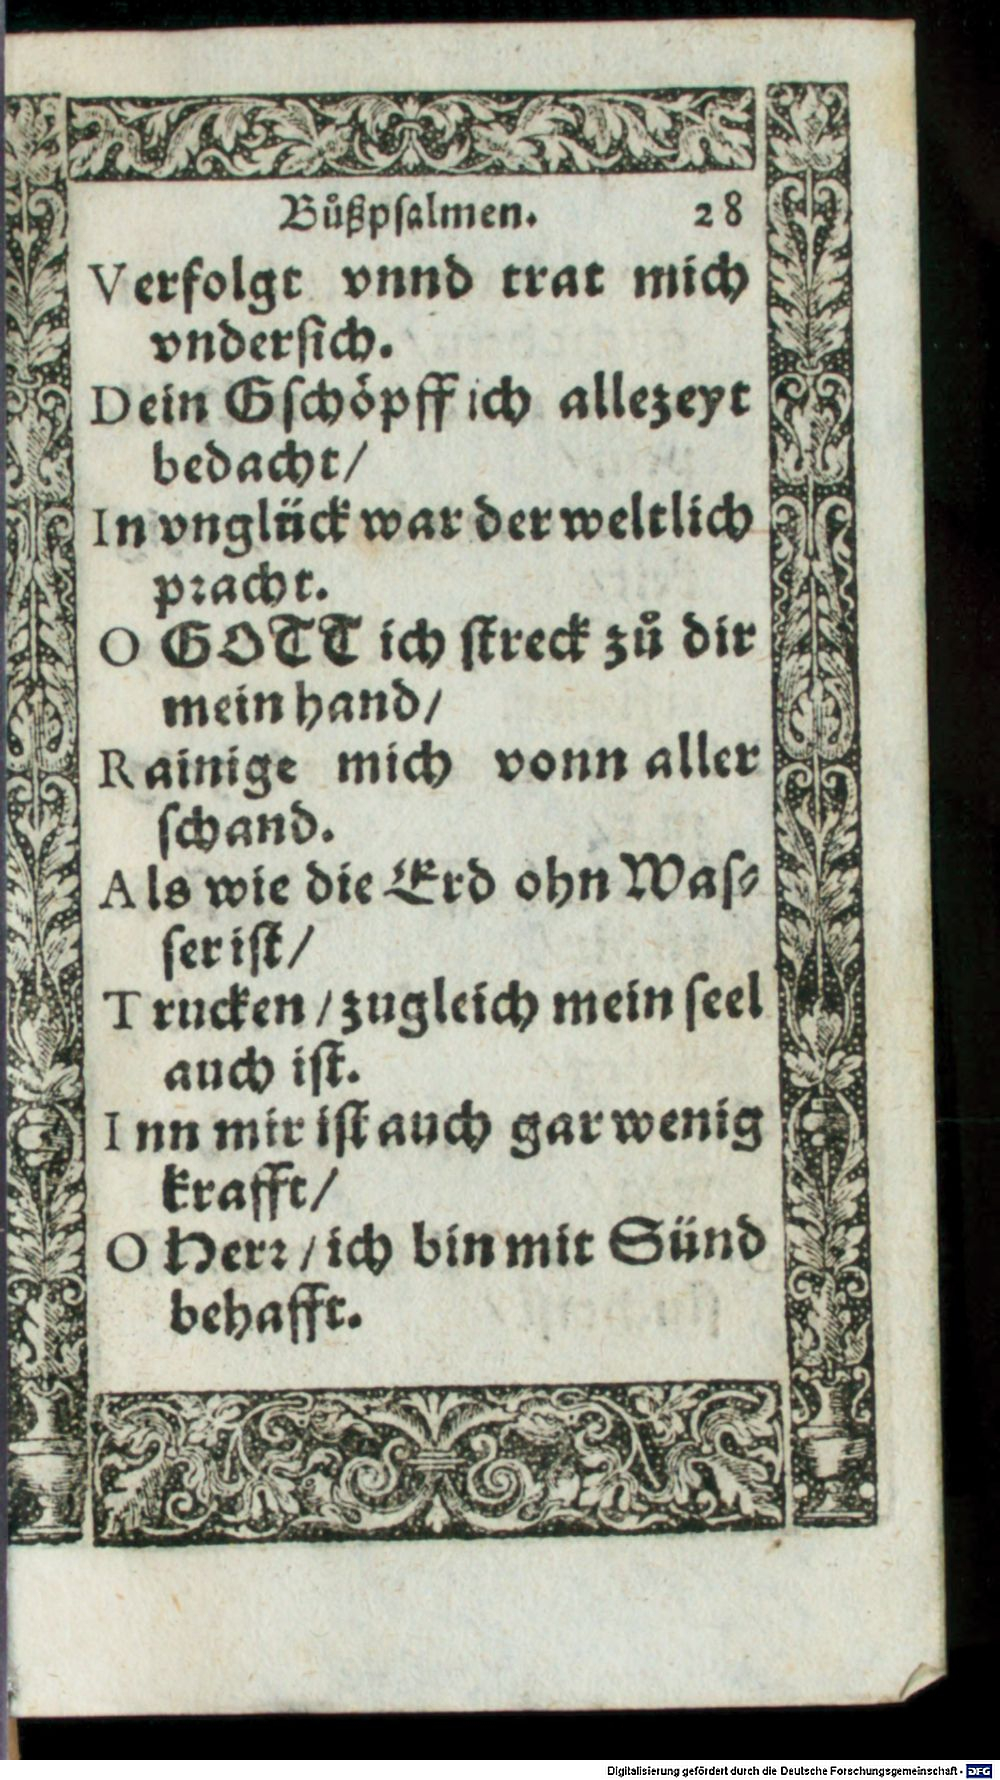 Bůßpsalmen. 28
Verfolgt vnnd trat mich
vndersich.
Dein Gschöpff ich allezeyt
bedacht/
In vnglück war der weltlich
pracht.
O GOTT ich streck zů dir
mein hand/
Rainige mich vonn aller
schand.
Als wie die Erd ohn Was⸗
ser ist/
Trucken / zugleich mein seel
auch ist.
Inn mir ist auch gar wenig
krafft/
O Herr / ich bin mit Sünd
behafft.
Digitalisierung gefördert durch die Deutsche Forschungsgemeinschaft - DFG